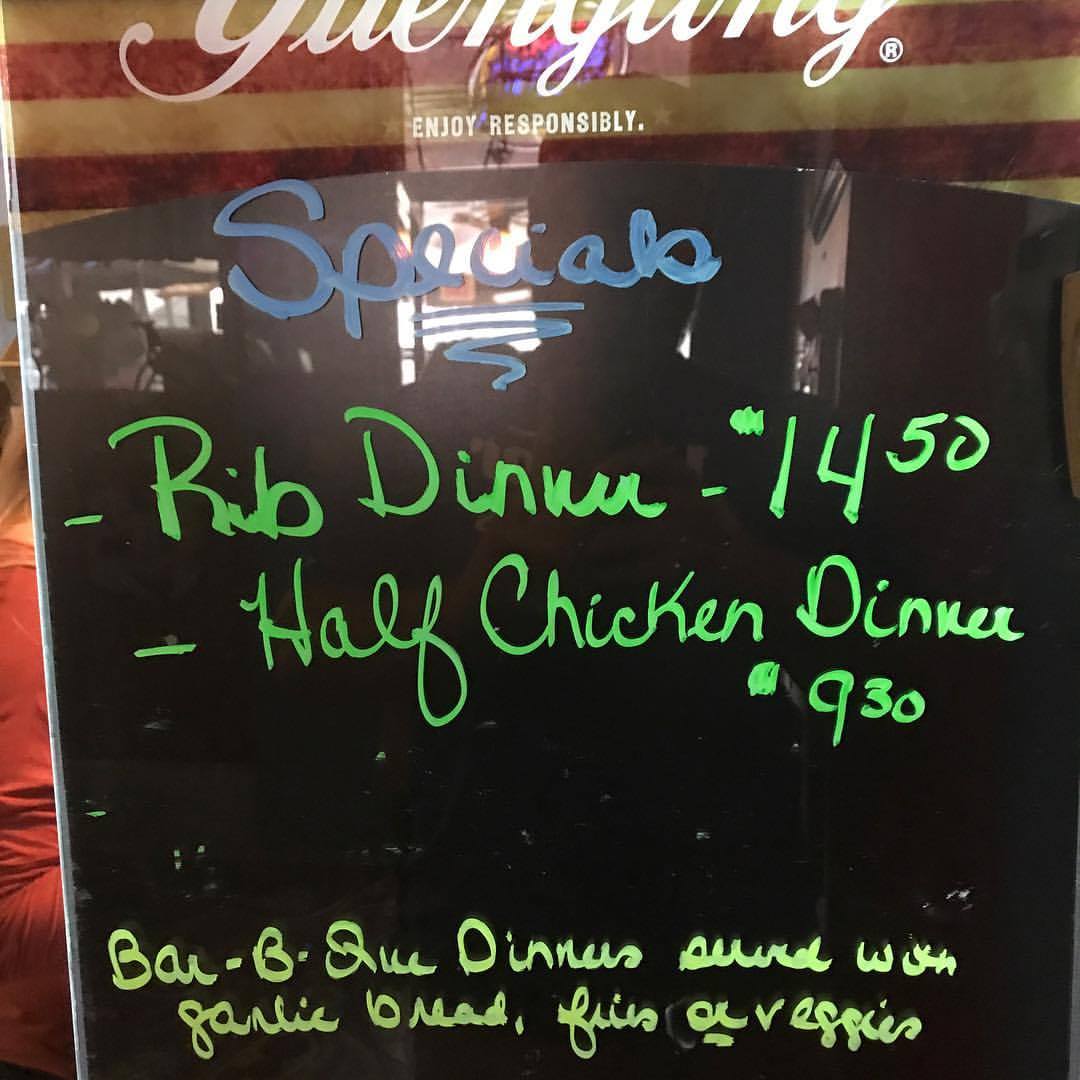 Yuengling®
ENJOY RESPONSIBLY.
Specials
- Rib Dinner - $14 50
- Half Chicken Dinner
$ 9 30
Bar-B-Que Dinners served with
garlic bread, fries or veggies